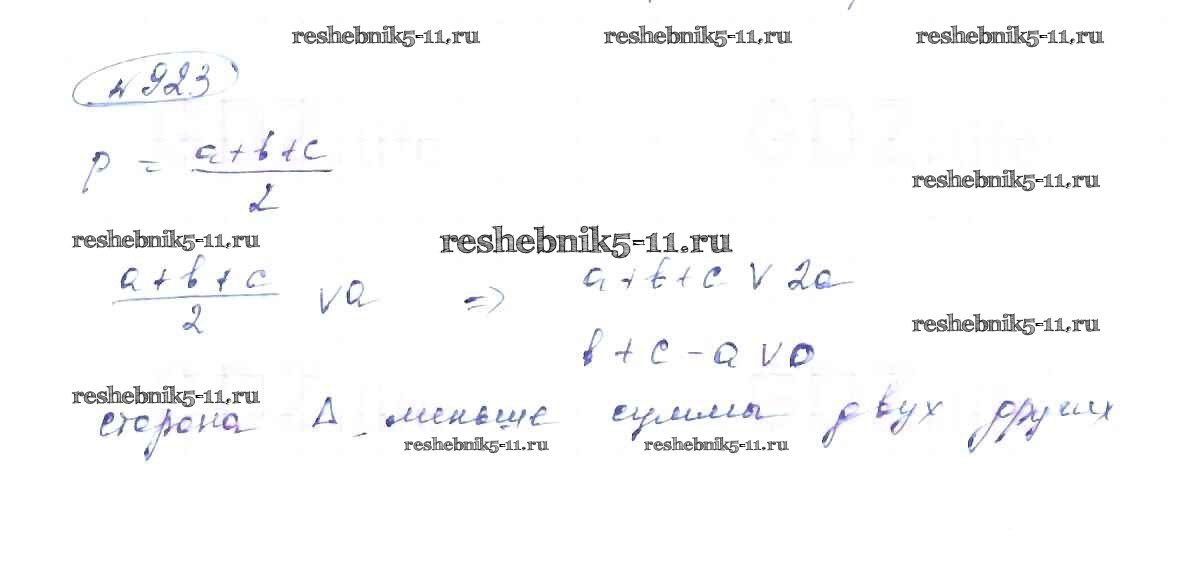 reshebnik5-11.ru reshebnik5-11.ru reshebnik5-11.ru
№923
p = (a+b+c)/2
reshebnik5-11.ru
reshebnik5-11.ru reshebnik5-11.ru
(a+b+c)/2 ∨ a ⇒ a+b+c ∨ 2a
reshebnik5-11.ru
b+c-a ∨ 0
reshebnik5-11.ru
сторона Δ меньше суммы двух других
reshebnik5-11.ru reshebnik5-11.ru